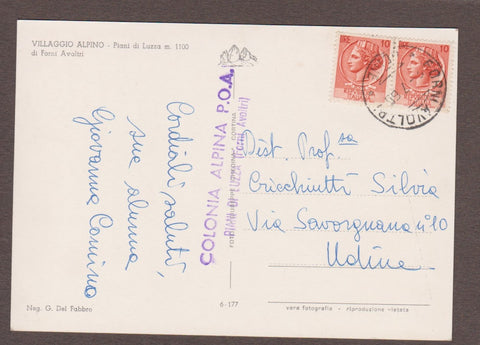 VILLAGGIO ALPINO - Piani di Luzza m. 1100
di Forni Avoltri
Cordiali saluti,
sua alunna
Giovanna
COLONIA ALPINA P.O.A.
PIANI DI LUZZA (Forni Avoltri)
10
10
FORNI AVOLTRI
Dist. Prof.ssa
Cricchiutti Silvia
Via Savorgnana n°10
Udine
Neg. G. Del Fabbro
6-177
vera fotografia - riproduzione vietata